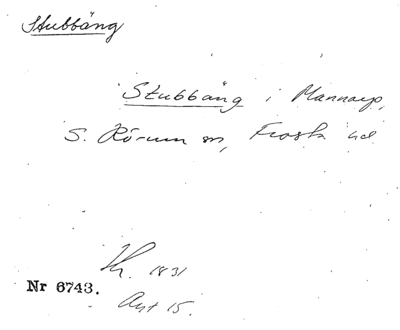 Stubbäng
Stubbäng i Mannarp,
S. Rörum sn, Frosta hd
1831
Nr 6743.
Avt 15.